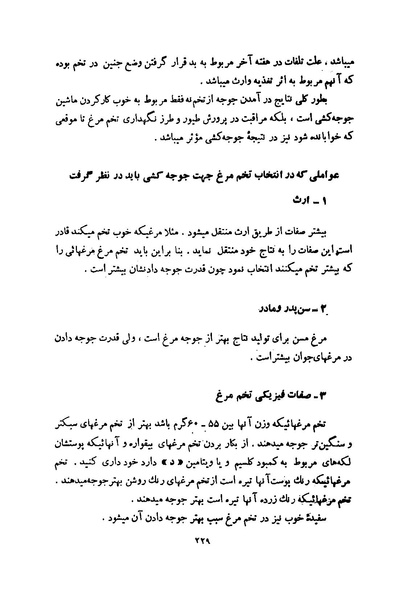 میباشد ، علت تلفات در هفته آخر مربوط به بد قرار گرفتن وضع جنین در تخم بوده
که آنهم مربوط به اثر تغذیه وارث میباشد .
بطور کلی نتایج در آمدن جوجه از تخم نه فقط مربوط به خوب کار کردن ماشین
جوجه‌کشی است ، بلکه مراقبت در پرورش طیور و طرز نگهداری تخم مرغ تا موقعی
که خوابانده شود نیز در نتیجهٔ جوجه‌کشی مؤثر میباشد .
عواملی که در انتخاب تخم مرغ جهت جوجه کشی باید در نظر گرفت
۱ ـ ارث
بیشتر صفات از طریق ارث منتقل میشود . مثلا مرغیکه خوب تخم میکند قادر
است این صفات را به نتاج خود منتقل نماید . بنا براین باید تخم مرغ مرغهائی را
که بیشتر تخم میکنند انتخاب نمود چون قدرت جوجه دادنشان بیشتر است .
۲ ـ سن پدر ومادر
مرغ مسن برای تولید نتاج بهتر از جوجه مرغ است ، ولی قدرت جوجه دادن
در مرغهای‌جوان بیشتر است .
۳ ـ صفات فیزیکی تخم مرغ
تخم مرغهائیکه وزن آنها بین ۵۵ ـ ۶۰ گرم باشد بهتر از تخم مرغهای سبکتر
و سنگین‌تر جوجه میدهند . از بکار بردن تخم مرغهای بیقواره و آنهائیکه پوستشان
لکه‌های مربوط به کمبود کلسیم و یا ویتامین «د» دارد خود داری کنید . تخم
مرغهائیکه رنگ پوست آنها تیره است از تخم مرغهای رنگ روشن بهتر جوجه میدهند .
تخم مرغهائیکه رنگ زرده آنها تیره است بهتر جوجه میدهند .
سفیدهٔ خوب نیز در تخم مرغ سبب بهتر جوجه دادن آن میشود .
۲۲۹